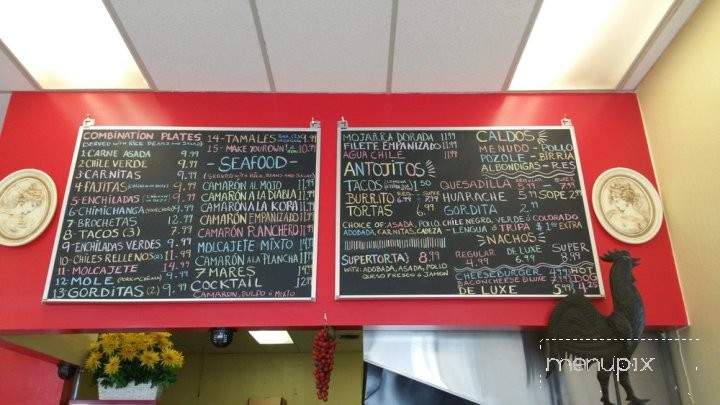 COMBINATION PLATES
(SERVED WITH RICE BEANS AND SALAD)
1-CARNE ASADA 9.99
2-CHILE VERDE 9.99
3-CARNITAS 9.99
4-FAJITAS 9.99
5-ENCHILADAS 9.99
6-CHIMICHANGA 9.99
7-BROCHETAS 12.99
8-TACOS (3) 7.99
9-ENCHILADAS VERDES 9.99
10-CHILES RELLENOS (2) 11.99
11-MOLCAJETE 14.99
12-MOLE
13-GORDITAS (2) 9.99
14-TAMALES 9.99
15-MAKE YOUR OWN! 10.99
-SEAFOOD-
(SERVED WITH RICE BEANS AND SALAD)
CAMARÓN AL MOJO 11.99
CAMARÓN A LA DIABLA 11.99
CAMARÓN A LA KORA 11.99
CAMARÓN EMPANIZADO 11.99
CAMARÓN RANCHERO 11.99
MOLCAJETE MIXTO 14.99
CAMARÓN A LA PLANCHA 11.99
7 MARES
COCKTAIL 12.99
CAMARON, PULPO Ó MIXTO
MOJARRA DORADA 11.99
FILETE EMPANIZADO 11.99
AGUA CHILE 11.99
ANTOJITOS
TACOS 1.50
BURRITO
TORTAS 6.99
CHOICE OF: ASADA, POLLO
ADOBADA, CARNITAS, CABEZA
SUPERTORTA) 8.99
WITH: ADOBADA, ASADA, POLLO
QUESO FRESCO & JAMON
CALDOS
MENUDO - POLLO
POZOLE - BIRRIA
ALBONDIGAS - RES
QUESADILLA REGULAR 5.99 SUPER 7.99
HUARACHE 5.99 SOPE 2.99
GORDITA 2.99
CHILE NEGRO, VERDE Ó COLORADO
-LENGUA Ó TRIPA $1.00 EXTRA
NACHOS
REGULAR 4.99
DE LUXE 6.99
SUPER 8.99
CHEESEBURGER 4.99
BACON CHEESE DE LUXE 5.99
DE LUXE 5.99
HOT DOGS 4.25
menupix